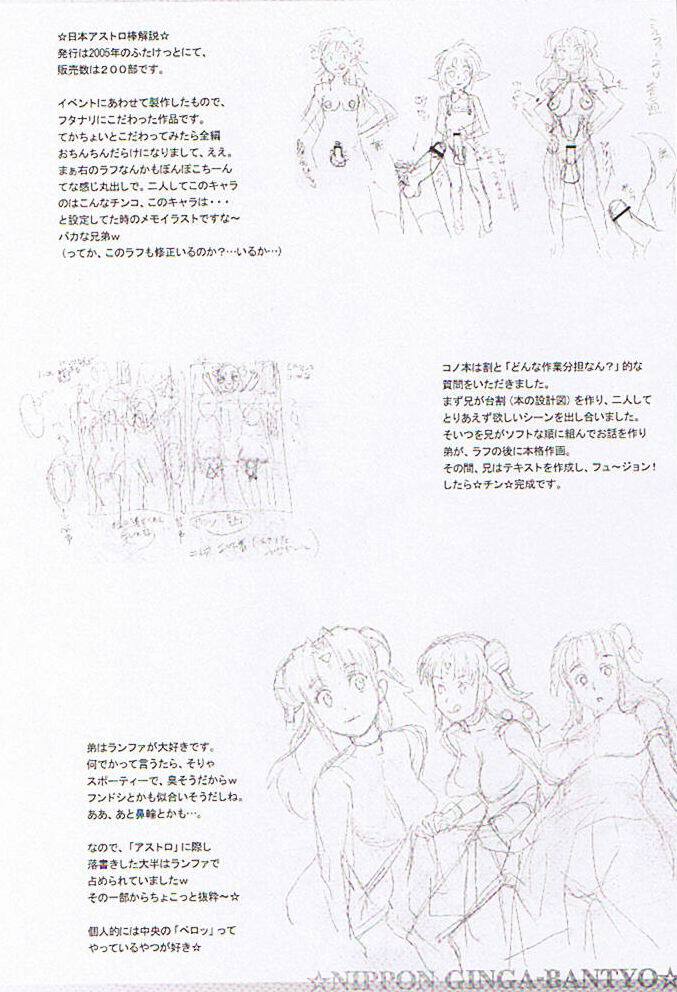 ☆日本アストロ棒解説☆
発行は2005年のふたけっとにて、
販売数は２００部です。
イベントにあわせて製作したもので、
フタナリにこだわった作品です。
てかちょいとこだわってみたら全編
おちんちんだらけになりまして、ええ。
まぁ右のラフなんかもぽんぽこちーん
てな感じ丸出しで。二人してこのキャラ
のはこんなチンコ、このキャラは・・・
と設定してた時のメモイラストですな～
バカな兄弟ｗ
（ってか、このラフも修正いるのか？…いるか…）
コノ本は割と「どんな作業分担なん？」的な
質問をいただきました。
まず兄が台割（本の設計図）を作り、二人して
とりあえず欲しいシーンを出し合いました。
そいつを兄がソフトな順に組んでお話を作り
弟が、ラフの後に本格作画。
その間、兄はテキストを作成し、フュ～ジョン！
したら☆チン☆完成です。
弟はランファが大好きです。
何でかって言うたら、そりゃ
スポーティーで、臭そうだからｗ
フンドシとかも似合いそうだしね。
ああ、あと鼻輪とかも…。
なので、「アストロ」に際し
落書きした大半はランファで
占められていましたｗ
その一部からちょこっと抜粋～☆
個人的には中央の「ペロッ」って
やっているやつが好き☆
☆NIPPON GINGA-BANTYO☆